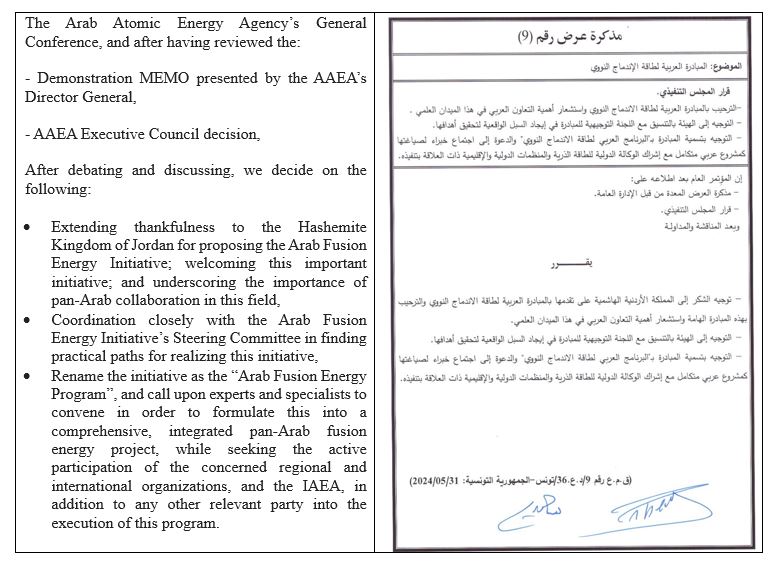 The Arab Atomic Energy Agency's General
Conference, and after having reviewed the:
- Demonstration MEMO presented by the AAEA's
Director General,
- AAEA Executive Council decision,
After debating and discussing, we decide on the
following:
• Extending thankfulness to the Hashemite
Kingdom of Jordan for proposing the Arab Fusion
Energy Initiative; welcoming this important
initiative; and underscoring the importance of
pan-Arab collaboration in this field,
• Coordination closely with the Arab Fusion
Energy Initiative's Steering Committee in finding
practical paths for realizing this initiative,
• Rename the initiative as the "Arab Fusion Energy
Program", and call upon experts and specialists to
convene in order to formulate this into a
comprehensive, integrated pan-Arab fusion
energy project, while seeking the active
participation of the concerned regional and
international organizations, and the IAEA, in
addition to any other relevant party into the
execution of this program.
مذكرة عرض رقم (9)
الموضوع: المبادرة العربية لطاقة الإندماج النووي
قرار المجلس التنفيذي.
-الترحيب بالمبادرة العربية لطاقة الاندماج النووي واستشعار أهمية التعاون العربي في هذا الميدان العلمي .
- التوجيه إلى الهيئة بالتنسيق مع اللجنة التوجيهية للمبادرة في إيجاد السبل الواقعية لتحقيق أهدافها.
- التوجيه بتسمية المبادرة بـ"البرنامج العربي لطاقة الاندماج النووي" والدعوة إلى اجتماع خبراء لصياغتها
كمشروع عربي متكامل مع إشراك الوكالة الدولية للطاقة الذرية والمنظمات الدولية والإقليمية ذات العلاقة بتنفيذه.
إن المؤتمر العام بعد اطلاعه على:
- مذكرة العرض المعدة من قبل الإدارة العامة.
- قرار المجلس التنفيذي.
وبعد المناقشة والمداولة
يقــــــرر
- توجيه الشكر إلى المملكة الأردنية الهاشمية على تقدمها بالمبادرة العربية لطاقة الاندماج النووي والترحيب
بهذه المبادرة الهامة واستشعار أهمية التعاون العربي في هذا الميدان العلمي.
- التوجيه إلى الهيئة بالتنسيق مع اللجنة التوجيهية للمبادرة في إيجاد السبل الواقعية لتحقيق أهدافها.
- التوجيه بتسمية المبادرة بـ"البرنامج العربي لطاقة الاندماج النووي" والدعوة إلى اجتماع خبراء لصياغتها
كمشروع عربي متكامل مع إشراك الوكالة الدولية للطاقة الذرية والمنظمات الدولية والإقليمية ذات العلاقة بتنفيذه.
(ق.م.ع رقم 9/د.ع.36/تونس-الجمهورية التونسية: 2024/05/31)